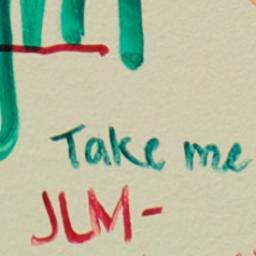 Take me
JLM-